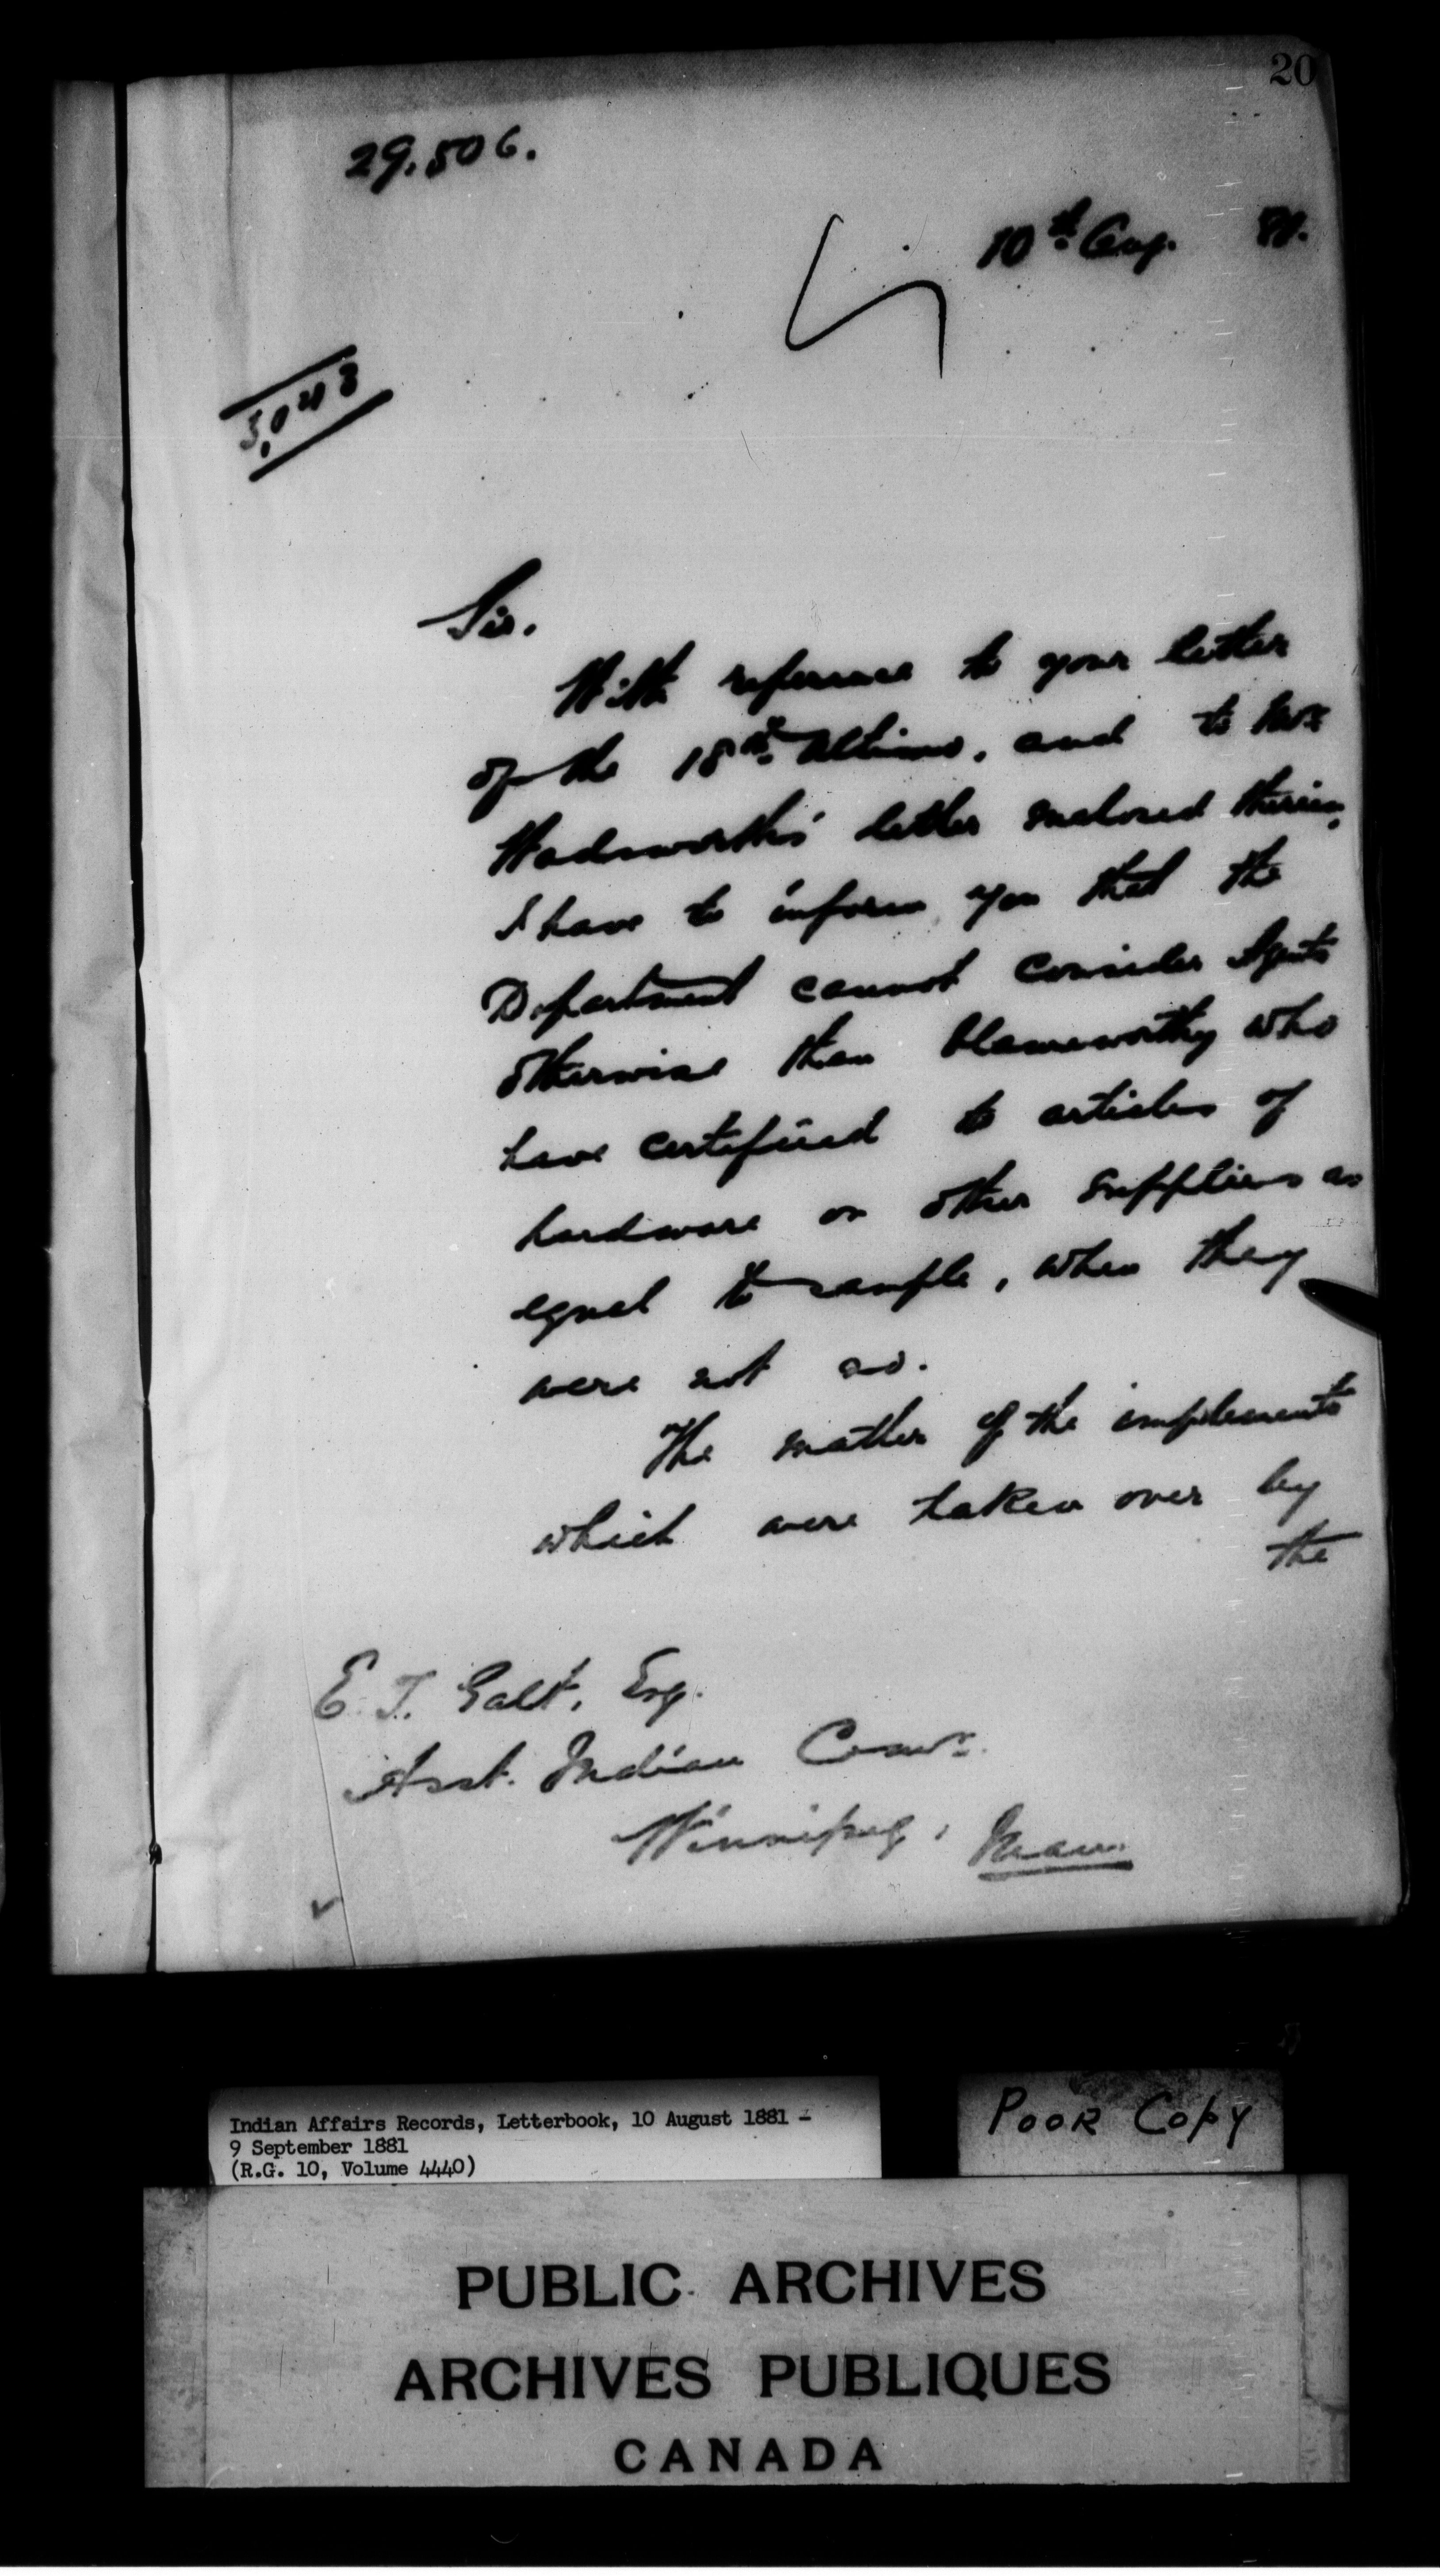 20
29.506.
10th Aug. 81.
3,043
Sir.
With reference to your letter
of the 18th Ultimo, and to Mr
Wadsworth's letter enclosed therein,
I have to inform you that the
Department cannot consider Agents
otherwise than blameworthy who
have certified to articles of
hardware or other supplies as
equal to sample, when they
were not so.
The matter of the implements
which were taken over by
the
E. T. Galt, Esq.
Asst. Indian Commr.
Winnipeg, Man.
Indian Affairs Records, Letterbook, 10 August 1881 -
9 September 1881
(R.G. 10, Volume 4440)
POOR COPY
PUBLIC ARCHIVES
ARCHIVES PUBLIQUES
CANADA